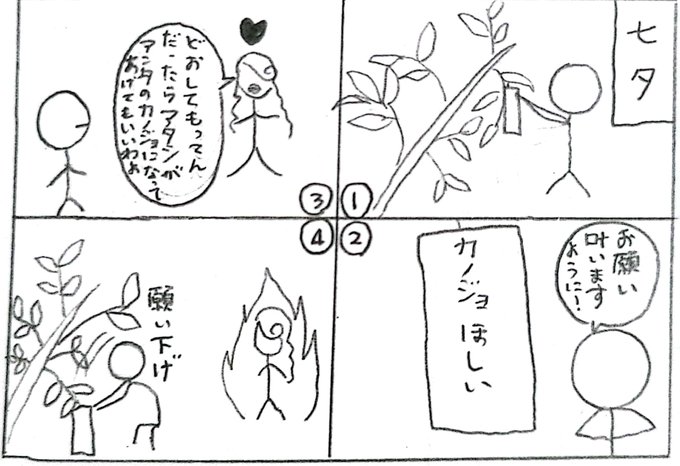 七夕
①
カノジョほしい
お願い
叶います
ように!
②
どおしてもってん
だったらアタシが
アンタのカノジョになって
あげてもいいわよ
③
願い下げ
④